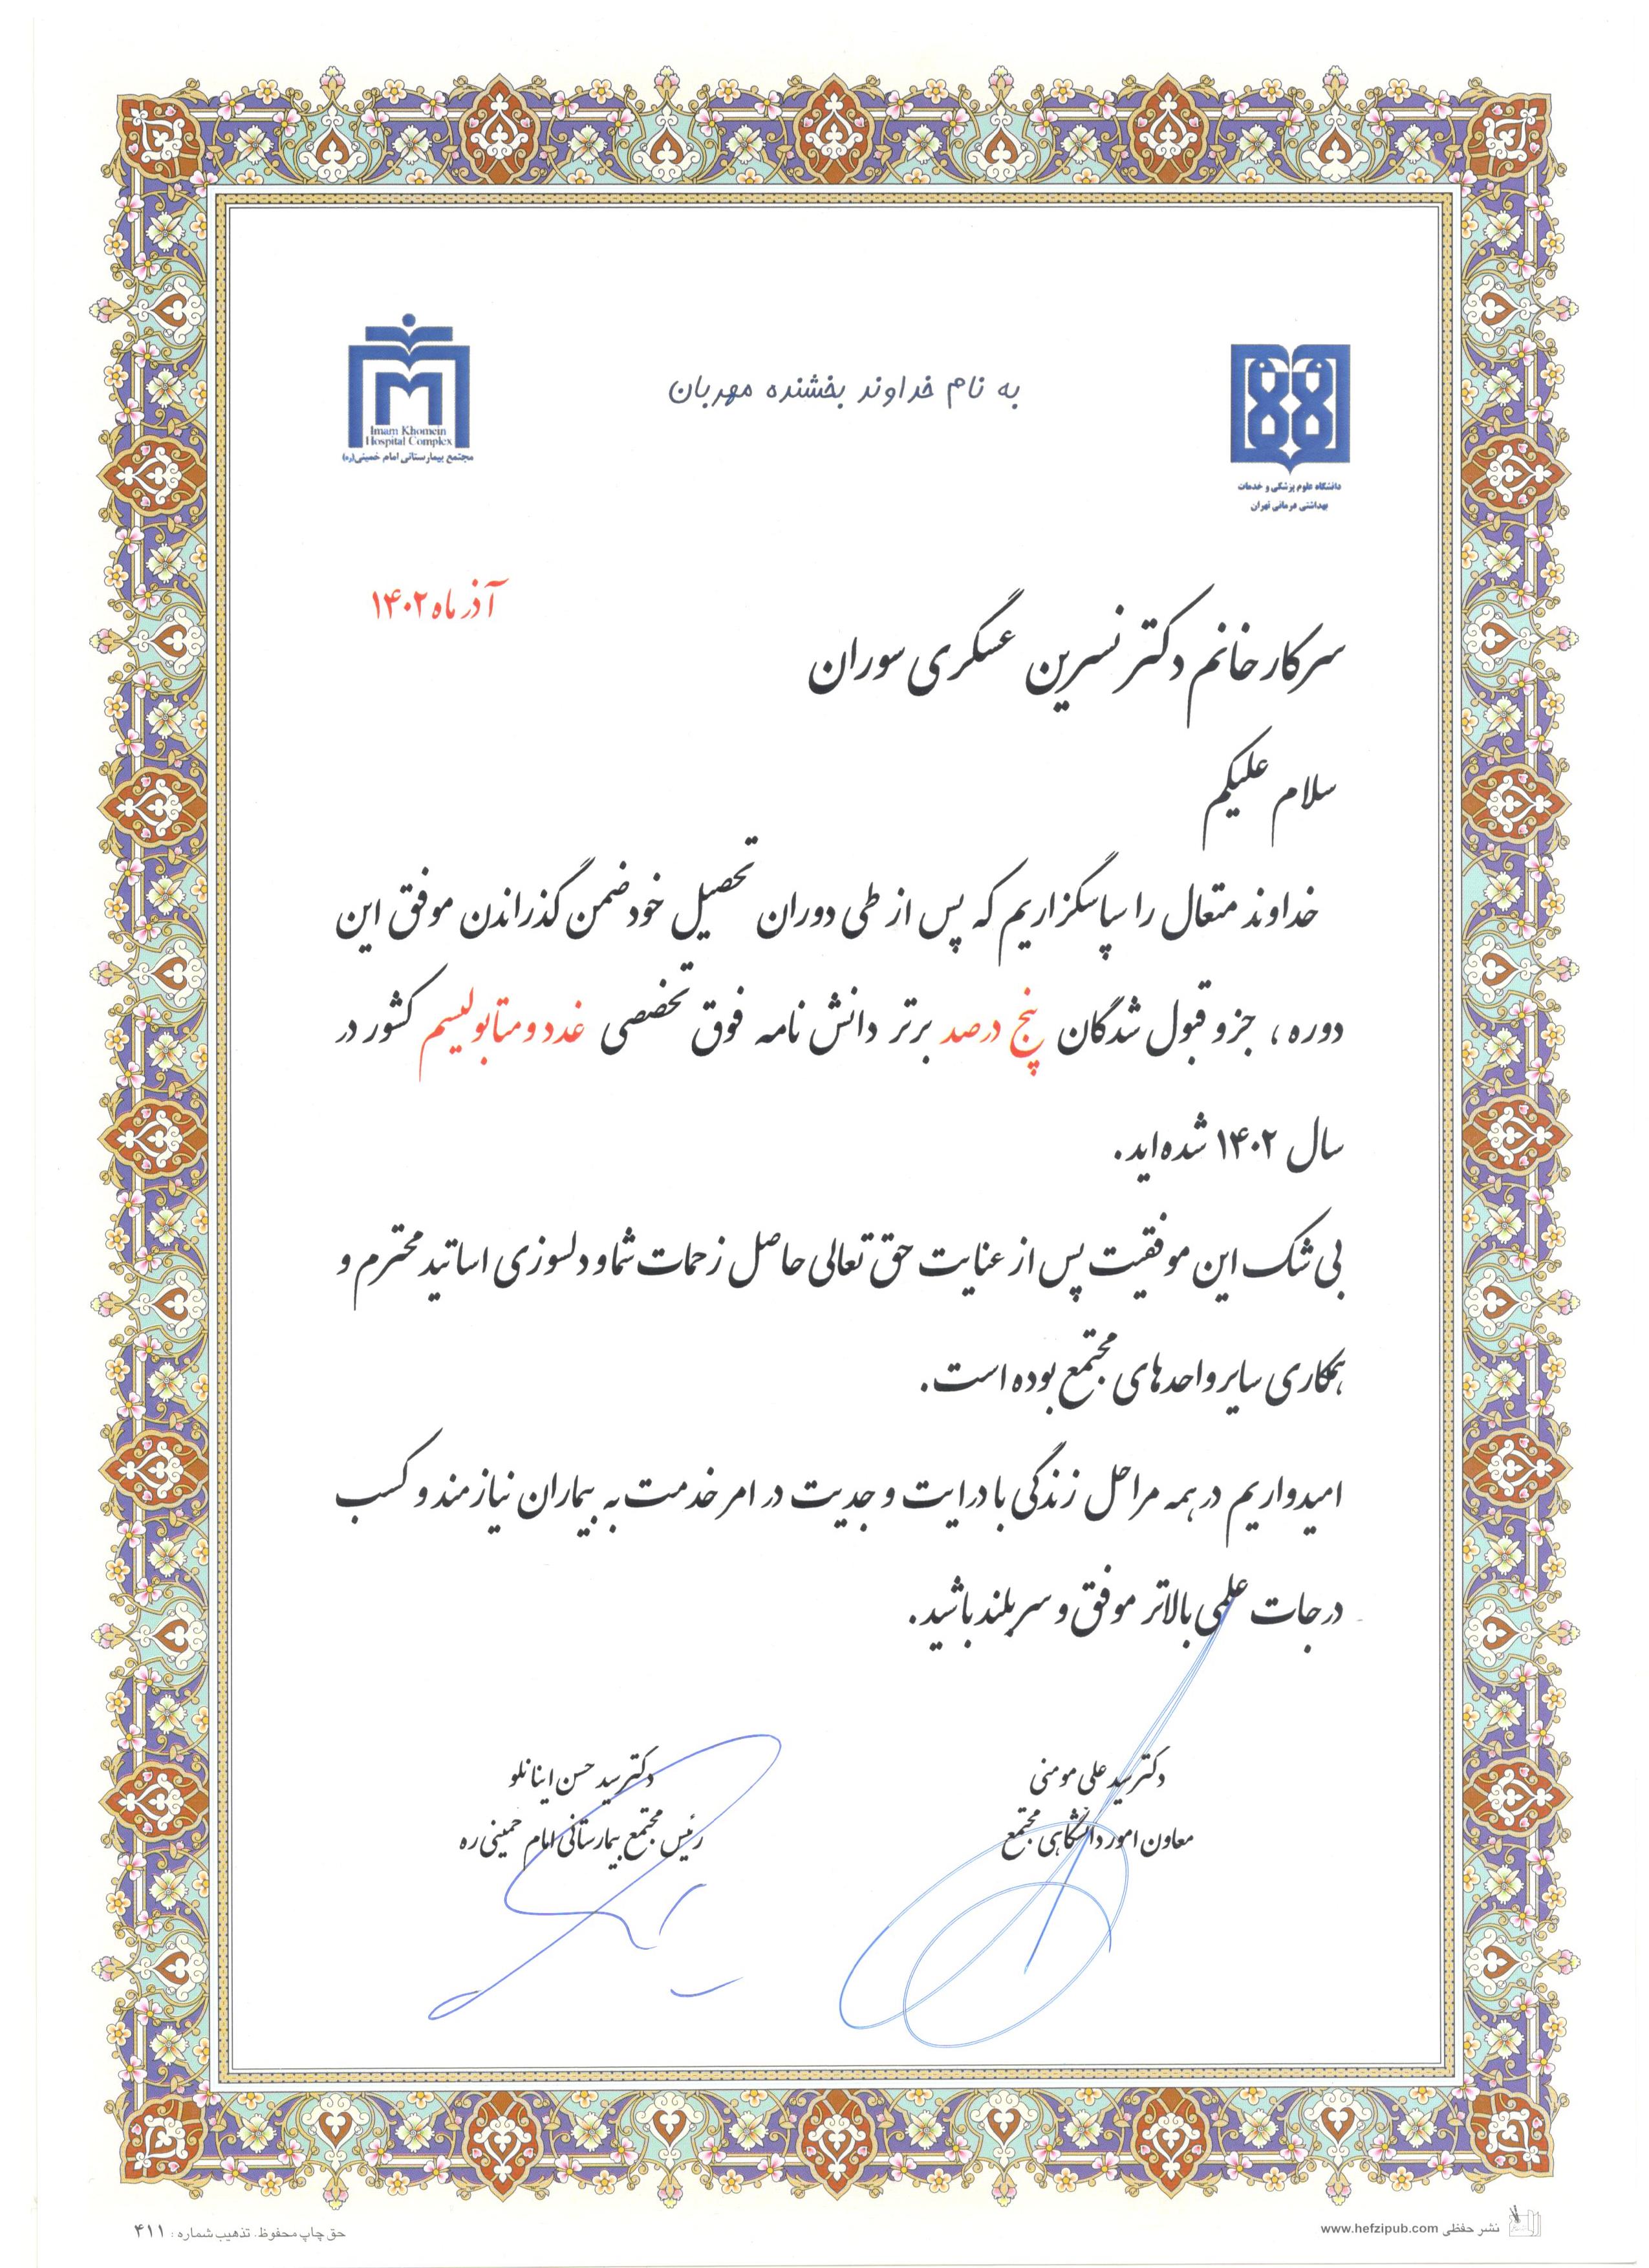 به نام خداوند بخشنده مهربان
Imam Khomein
Hospital Complex
مجتمع بیمارستانی امام خمینی(ره)
دانشگاه علوم پزشکی و خدمات
بهداشتی درمانی تهران
آذر ماه ۱۴۰۲
سرکار خانم دکتر نسرین عسگری سوران
سلام علیکم
خداوند متعال را سپاسگزاریم که پس از طی دوران تحصیل خود ضمن گذراندن موفق این
دوره، جزو قبول شدگان پنج درصد برتر دانش نامه فوق تخصصی غدد و متابولیسم کشور در
سال ۱۴۰۲ شده اید.
بی شک این موفقیت پس از عنایت حق تعالی حاصل زحمات شما و دلسوزی اساتید محترم و
همکاری سایر واحدهای مجتمع بوده است.
امیدواریم در همه مراحل زندگی با درایت و جدیت در امر خدمت به بیماران نیازمند و کسب
درجات علمی بالاتر موفق و سربلند باشید.
دکتر سید علی مومنی
معاون امور دانشگاهی مجتمع
دکتر سید حسن اینانلو
رئیس مجتمع بیمارستانی امام خمینی ره
نشر حفظی www.hefzipub.com
حق چاپ محفوظ. تذهیب شماره: ۴۱۱